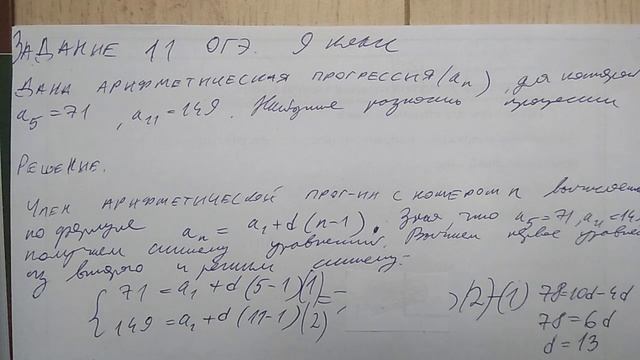 ЗАДАНИЕ 11 ОГЭ. 9 класс
ДАНА АРИФМЕТИЧЕСКАЯ ПРОГРЕССИЯ (aₙ), для которой
a₅=71, a₁₁=149. Найдите разность прогрессии
РЕШЕНИЕ.
Член АРИФМЕТИЧЕСКОЙ ПРОГ-ИИ с номером n вычисляется
по формуле aₙ = a₁+d(n-1). Зная, что a₅=71, a₁₁=14
получаем систему уравнений. Вычтем первое уравнен
из второго и решим систему:
{ 71 = a₁ + d(5-1) (1)
149 = a₁ + d(11-1) (2)
(2)-(1) 78=10d-4d
78=6d
d=13